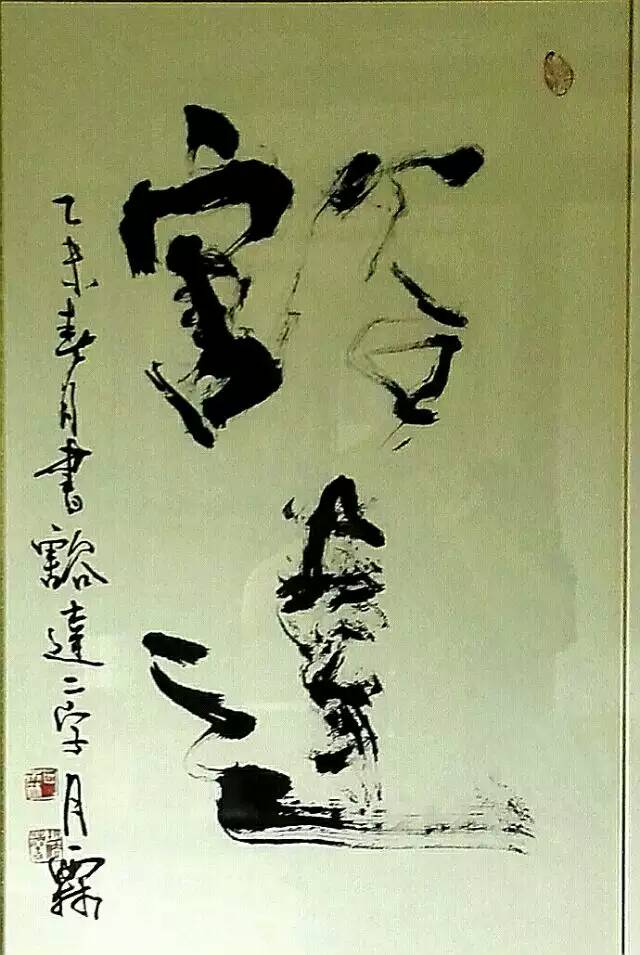 豁
達
乙未春月書豁達二字月霖